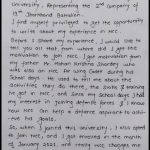 University, Representing the 2nd company of
13th Jharkhand Battalion.
I feel myself privileged to get the opportunity
to write about my experience in NCC.
Before I share my experience, I would like to
tell you all that from where did I got the
motivation to join NCC. I got motivation from
my father Mr
who was also an NCC Cadet during his
School days. He used to tell me about the
activities they do there, the skills & training
he got in NCC. And since my School days I had
my interest in joining defence forces & I know
how NCC can help a defence aspirant to achieve
his goals.
So, when I joined this university, I was opted
to join NCC, and I got enrolled in the month
of January 2021, and NCC changes me